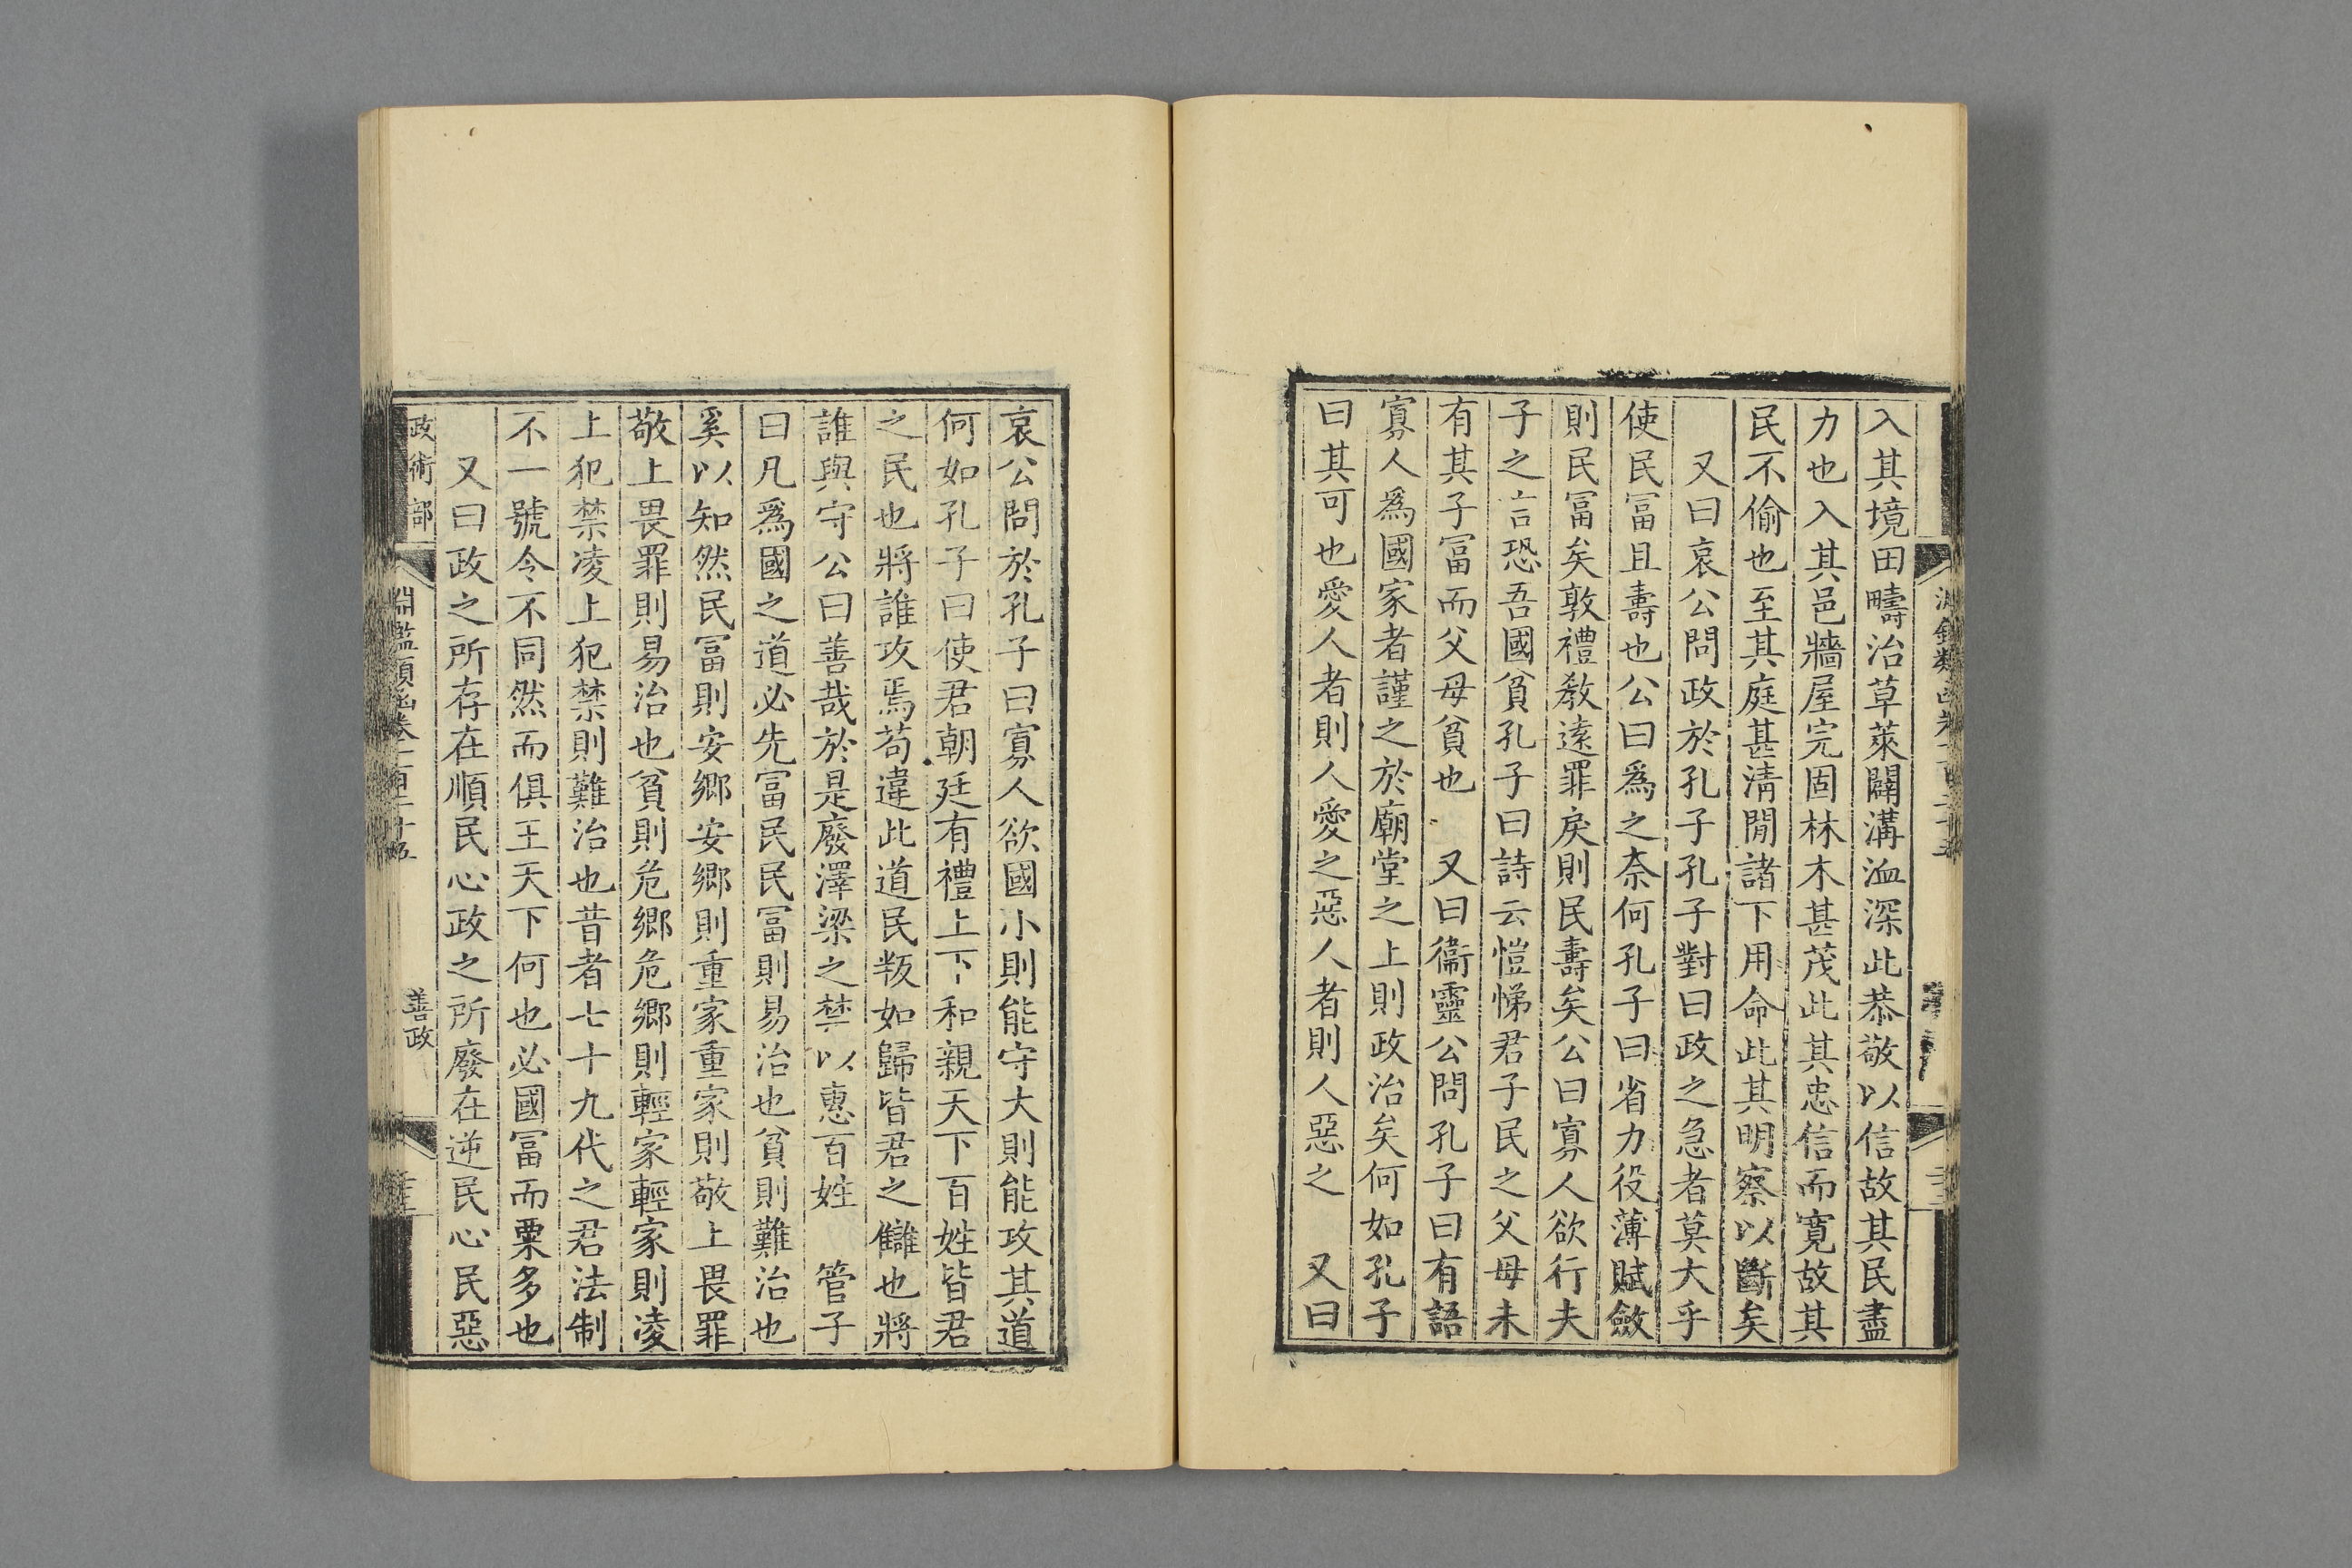 入其境田疇治草萊闢溝洫深此恭敬以信故其民盡
力也入其邑牆屋完固林木甚茂此其忠信而寬故其
民不偷也至其庭甚淸閒諸下用命此其明察以斷矣
又曰哀公問政於孔子孔子對曰政之急者莫大乎
使民冨且壽也公曰爲之奈何孔子曰省力役薄賦斂
則民冨矣敦禮敎遠罪戾則民壽矣公曰寡人欲行夫
子之言恐吾國貧孔子曰詩云愷悌君子民之父母未
有其子冨而父母貧也　又曰衞靈公問孔子曰有語
寡人爲國家者謹之於廟堂之上則政治矣何如孔子
曰其可也愛人者則人愛之惡人者則人惡之　又曰
哀公問於孔子曰寡人欲國小則能守大則能攻其道
何如孔子曰使君朝廷有禮上下和親天下百姓皆君
之民也將誰攻焉苟違此道民叛如歸皆君之讎也將
誰與守公曰善哉於是廢澤梁之禁以惠百姓　管子
曰凡爲國之道必先冨民民冨則易治也貧則難治也
奚以知然民冨則安鄉安鄉則重家重家則敬上畏罪
敬上畏罪則易治也貧則危鄉危鄉則輕家輕家則凌
上犯禁凌上犯禁則難治也昔者七十九代之君法制
不一號令不同然而俱王天下何也必國冨而粟多也
又曰政之所存在順民心政之所廢在逆民心民惡
政術部
淵鑑類函卷一百二十五
善政